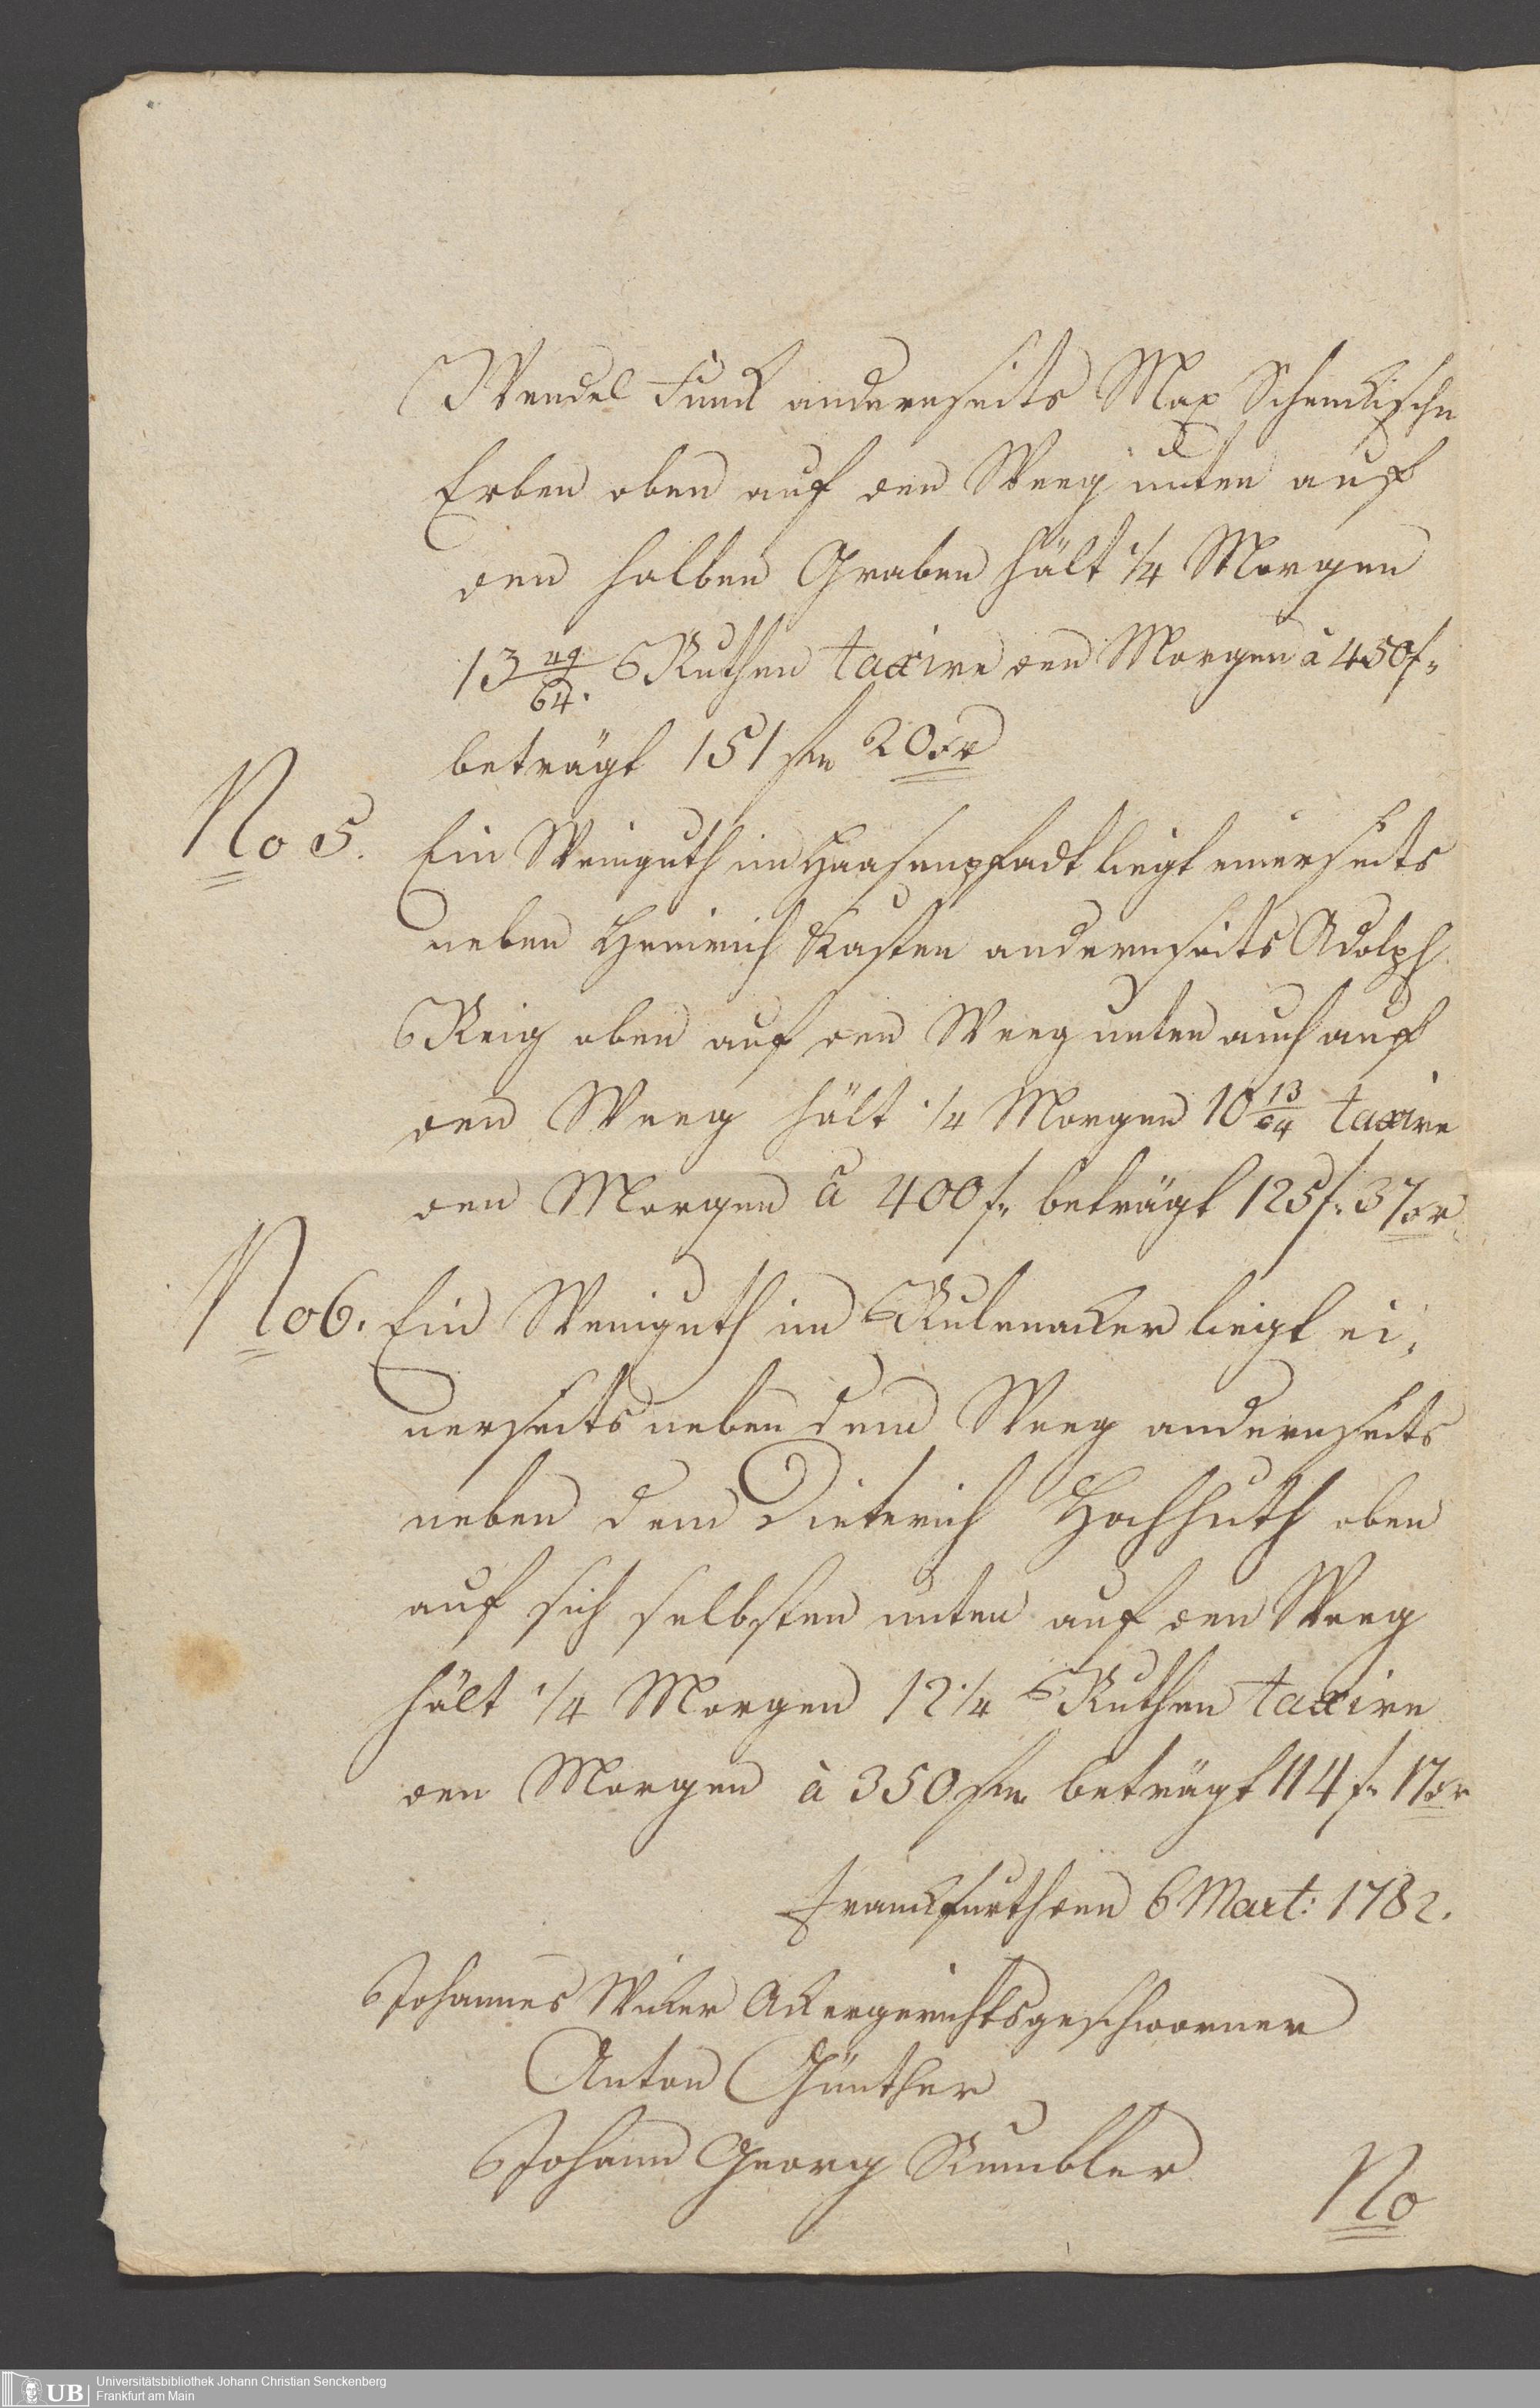 Wendel Funck andernseits Max Schenckische
Erben oben auf den Weeg unten auf
den halben Graben hält 1/4 Morgen
13 49/64. Ruthen taxire den Morgen à 450 f.
beträgt 151 f. 20 xr
No 5. Ein Weinguth im Haasenpfadt liegt einerseits
neben Henrich Kasten andernseits Adolph
Reig oben auf den Weeg unten auch auf
den Weeg hält 1/4 Morgen 10 13/64 taxire
den Morgen à 400 f. beträgt 125 f. 37 xr
No 6. Ein Weinguth im liegt ei„
nerseits neben dem Weeg andernseits
neben dem Dieterich Hochhuth oben
auf sich selbsten unten auf den Weeg
hält 1/4 Morgen 12 1/4 Ruthen taxire
den Morgen à 350 f. beträgt 114 f. 17 xr
Franckfurth den 6. Mart: 1782.
Johannes Ackergerichtsgeschworner
Anton Günther
Johann Georg
No
UB Universitätsbibliothek Johann Christian Senckenberg
Frankfurt am Main